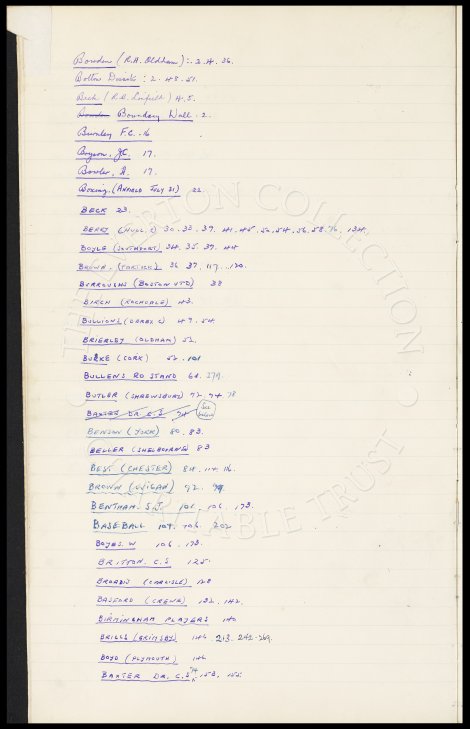 Bowden (R.A. Oldham) : 2. 4. 36.
Bolton Deserts : 2. 43. 51.
Beck (R.A. ) 4. 5.
Bowden Boundary Wall. 2.
Burnley F.C. 16
Boyson, J.C. 17.
Bowler, 17.
Boxing. (Anfield July 21) 22.
BECK 23.
BERRY (HULL. C) 30. 33. 39. 41. 45. 50. 54. 56. 58. 76. 134.
BOYLE (SOUTHPORT) 34. 35. 37. 44
BROWN. (TORINO) 36 37. 117. 120.
BURROUGHS (BOSTON UTD) 38
BIRCH (ROCHDALE) 43.
BULLIONS (DERBY C) 49. 54.
BRIERLEY (OLDHAM) 51.
BURKE (CORK) 52. 101
BULLENS RD STAND 64. 279.
BUTLER (SHREWSBURY) 72. 74 78
BAXTER DR C.S 74 See below
BENSON (YORK) 80. 83.
BELLER (SHELBOURNE) 83
BEST (CHESTER) 84. 114 116.
BROWN (WIGAN) 92. 99.
BENTHAM. S.J 101. 106. 173.
BASEBALL 104. 106. 202
BOYES. W 106. 173.
BRITTON. C.S 125.
BROADIS (CARLISLE) 128
BASFORD (CREWE) 132. 142.
BIRMINGHAM PLAYERS 140
BRIGGS (GRIMSBY) 146. 213. 242-269.
BOYD (PLYMOUTH) 146
BAXTER DR. C.S 74. 153. 155.
THE EVERTON COLLECTION
CHARITABLE TRUST